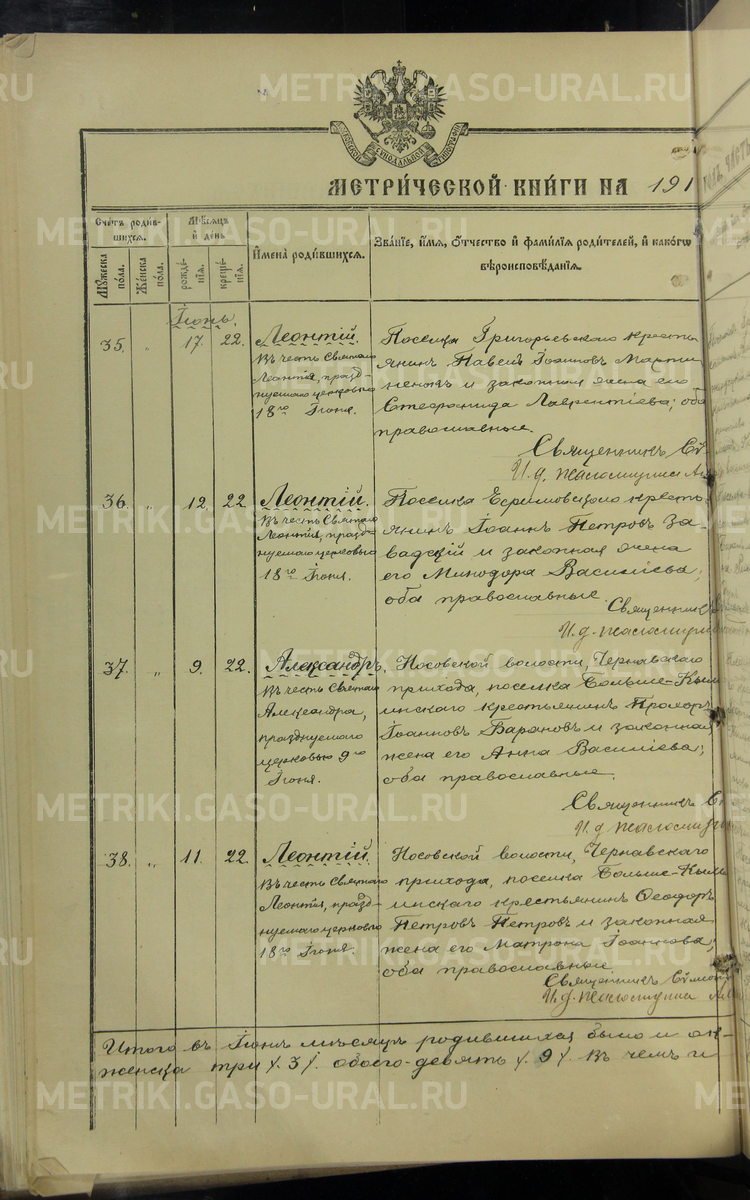 МЕТРИ́ЧЕСКОЙ КНИ́ГИ НА 191
Счетъ роди́в-
шихся.
Мѣсяцъ
и день
Мужеска
пола.
Женска
пола.
рожде-
нія.
креще-
нія.
Имена роди́вшихся.
Зва́ніе, и́мя, о́тчество и фами́лія роди́телей, и како́гѡ
вѣроисповѣ́данія.
Іюнь.
35. " 17. 22. Леонтій.
Въ честь Святаго
Леонтія, празд-
нуемаго церковью
18го Іюня.
Поселка Григорьевскаго кресть-
янинъ Павелъ Іоанновъ Марти-
ненко и законная жена его
Стефанида Лаврентіева; оба
православные.
Священникъ
И. д. псаломщика
36. " 12. 22. Леонтій.
Въ честь Святаго
Леонтія, празд-
нуемаго церковью
18го Іюня.
Поселка Ефимовскаго кресть-
янинъ Іоаннъ Петровъ За-
вадскій и законная жена
его Минодора Василіева;
оба православные.
Священникъ
И. д. псаломщика
37. " 9. 22. Александръ.
Въ честь Святаго
Александра,
празднуемаго
церковью 9го
Іюня.
Носовской волости, Чернавскаго
прихода, поселка Больше-Кым
инскаго крестьянинъ Прохоръ
Іоанновъ Барановъ и законная
жена его Анна Василіева;
оба православные.
Священникъ
И. д. псаломщика
38. " 11. 22. Леонтій.
Въ честь Святаго
Леонтія, празд-
нуемаго церковью
18го Іюня.
Носовской волости, Чернавскаго
прихода, поселка Больше-Кым
инскаго крестьянинъ Ѳеодоръ
Петровъ Петровъ и законная
жена его Матрона Іоаннова;
оба православные.
Священникъ
И. д. псаломщика
Итого въ Іюнѣ мѣсяцѣ родившихся было
женска три /. 3 /. обоего-девять /. 9 /. Въ чемъ и
METRIKI.GASO-URAL.RU